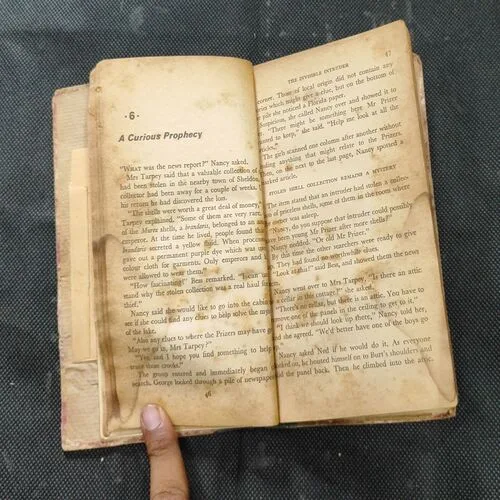 · 6 ·
A Curious Prophecy
"WHAT was the news report?" Nancy asked.
Mrs Tarpey said that a valuable collection of
had been stolen in the nearby town of Sheldon.
collector had been away for a couple of weeks.
his return he had discovered the loss.
"The shells were worth a great deal of money,"
Tarpey explained. "Some of them are very rare.
of the Murex shells, a brandaris, belonged to an
emperor. At the time he lived, people found the
brandaris secreted a yellow fluid. When processed
gave out a permanent purple dye which was used
colour cloth for garments. Only emperors and k
were allowed to wear them."
"How fascinating!" Ben remarked. "I can un
stand why the stolen collection was a real haul for
thief."
Nancy said she would like to go into the cabin
see if she could find any clues to help solve the mys
of the lake.
"Also any clues to where the Prizers may have g
May we go in, Mrs Tarpey?"
"Yes, and I hope you find something to help
trace them crooks."
The group entered and immediately began
search. George looked through a pile of newspapers
46
THE INVISIBLE INTRUDER
47
corner. Those of local origin did not contain any
stories which might give a clue, but on the bottom of
the pile she noticed a Florida paper.
Suspicious, she called Nancy over and showed it to
her. "There might be something here Mr Prizer
wanted to keep," she said. "Help me look at all the
articles."
The girls scanned one column after another without
finding anything that might relate to the Prizers.
on the next to the last page, Nancy spotted a
marked article.
STOLEN SHELL COLLECTION REMAINS A MYSTERY
The item stated that an intruder had stolen a collec-
of priceless shells, some of them in the room where
owner was asleep.
"Nancy, do you suppose that intruder could possibly
have been young Mr Prizer after more shells?"
Nancy nodded. "Or old Mr Prizer."
By this time the other searchers were ready to give
They had found no worthwhile clues.
"Look at this!" said Ben, and showed them the news
Nancy went over to Mrs Tarpey. "Is there an attic
a cellar in this cottage?" she asked.
"There's no cellar, but there is an attic. You have to
move one of the panels in the ceiling to get to it."
"I think we should look up there," Nancy told her,
and she agreed. "We'd better have one of the boys go
Nancy asked Ned if he would do it. As everyone
looked on, he hoisted himself on to Burt's shoulders and
the panel back. Then he climbed into the attic.